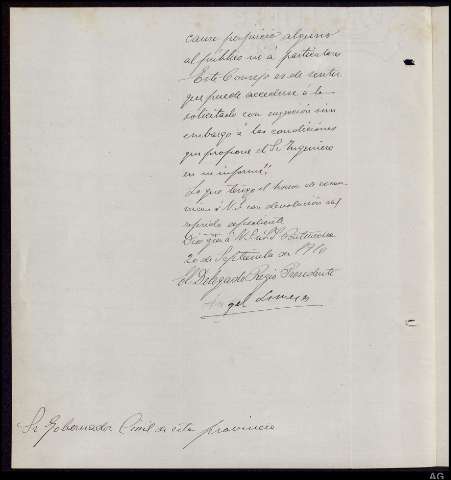 cause perjuicio alguno
al público ni á particulares
Este Consejo es de sentir
que puede accederse á lo
solicitado con sujeción sin
embargo á las condiciones
que propone el Sr Ingeniero
en su informe".
Lo que tengo el honor de comu-
nicar á V.S. con devolución del
referido expediente
Dios gue á V.S. ms. as. Pontevedra
20 de Septiembre de 1910
El Delegado Regio Presidente
Angel
Sr Gobernador Civil de esta provincia
AG